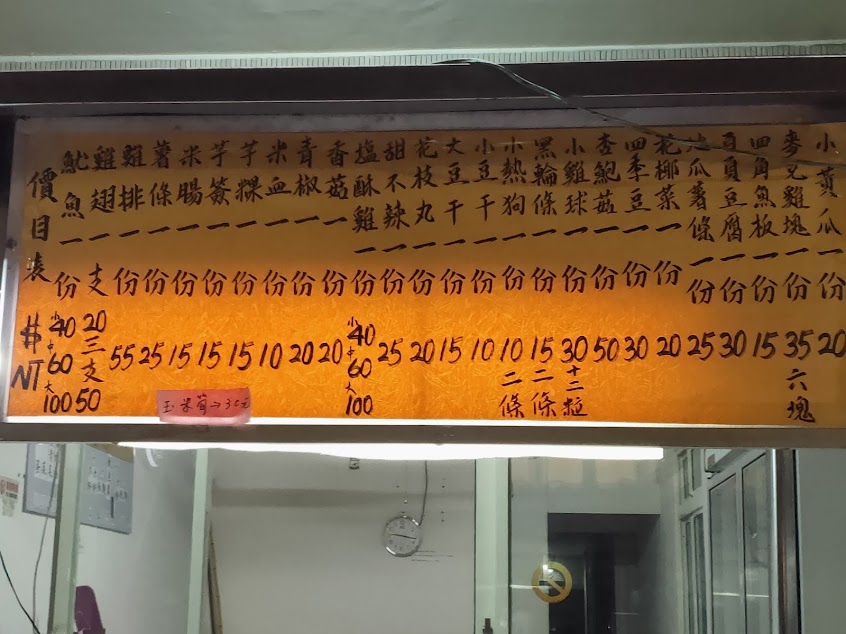 價目表 # NT
魷魚一份 小40 中60 大100
雞翅一支 20 三支50
雞排一份 55
薯條一份 25
米腸一份 15
芋簽一份 15
芋粿一份 15
米血一份 10
青椒一份 20
香菇一份 20
塩酥雞一份 小40 中60 大100
甜不辣一份 25
花枝丸一份 20
大豆干一份 15
小豆干一份 10
小熱狗一份 10 二條
黑輪條一份 15 二條
小雞球一份 30 十二粒
杏鮑菇一份 50
四季豆一份 30
花椰菜一份 20
地瓜薯條一份 25
百頁豆腐一份 30
四角魚板一份 15
麥克雞塊一份 35 六塊
小黃瓜一份 20
玉米筍→30元